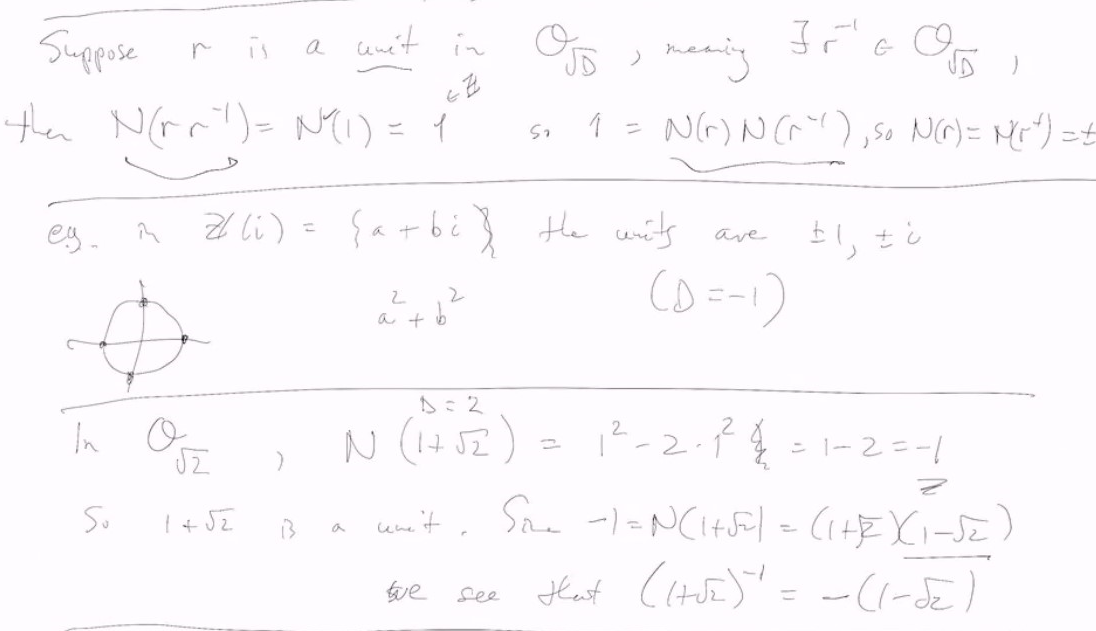 Suppose r is a unit in O_√D, meaning ∃ r⁻¹ ∈ O_√D,
then N(r r⁻¹) = N(1) = 1 ∈ ℤ so 1 = N(r) N(r⁻¹), so N(r) = N(r⁻¹) = ±
e.g. in ℤ(i) = {a + bi} the units are ±1, ±i
a² + b² (D = -1)
D = 2
In O_√2, N(1+√2) = 1² - 2·1² = 1 - 2 = -1
So 1+√2 is a unit. Since -1 = N(1+√2) = (1+√2)(1-√2)
we see that (1+√2)⁻¹ = -(1-√2)